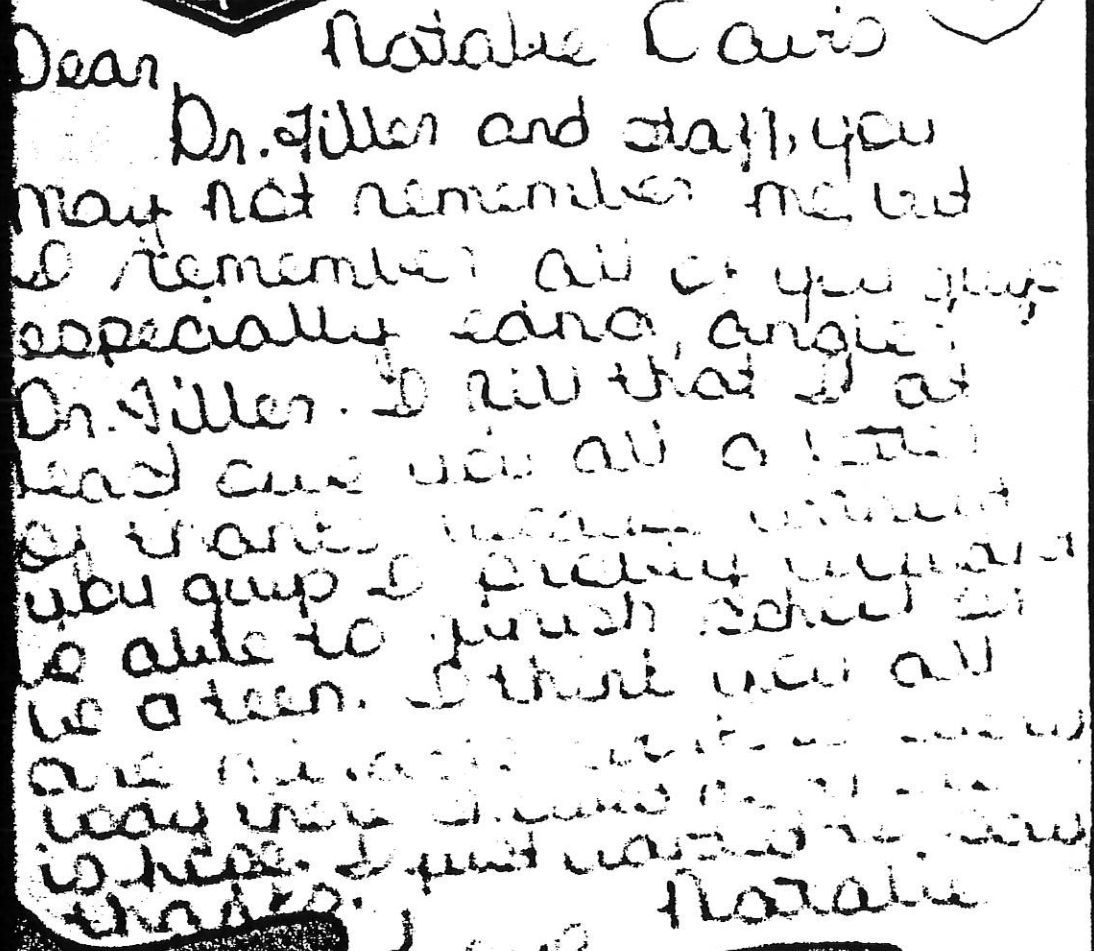 Dear, Natalie
Dr. Tiller and staff, you
may not remember me, but
I remember all of you guys
especially edna, angie,
Dr. Tiller. I felt that I at
least owe you all a letter
of thanks because without
you guys I probably wouldn't
be able to finish school or
be a teen. I think you all
are
is hope. I just wanted to
thanks.
Love Natalie